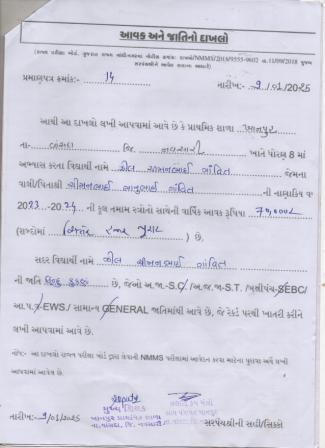 આવક અને જાતિનો દાખલો
(રાજ્ય પરીક્ષા બોર્ડ, ગુજરાત રાજ્ય ગાંધીનગરના નોટીસ ક્રમાંક: રાપબો/NMMS/2018/9555-9602 તા.11/09/2018 મુજબ
સરપંચશ્રીને આવેલ સત્તાના આધારે)
પ્રમાણપત્ર ક્રમાંક:- 14 તારીખ:- 9/01/2025
આથી આ દાખલો લખી આપવામાં આવે છે કે પ્રાથમિક શાળા ખાનપુર
તા- વાંસદા જિ. નવસારી ખાતે ધોરણ 8 માં
અભ્યાસ કરતા વિદ્યાર્થી નામે ગાંવિત જેમના
વાલી/પિતાશ્રી ગાંવિત ની નાણાકિય વર્ષ
2023-2024 ની કુલ તમામ સ્ત્રોતો સાથેની વાર્ષિક આવક રૂપિયા
(શબ્દોમાં હજાર પુરા ) છે.
સદર વિદ્યાર્થી નામે ગાંવિત
ની જાતિ હિન્દુ કુકણા છે, જેઓ અ.જા-S.C/અ.જ.જા-S.T./બક્ષીપંચ-SEBC/
આ.પ.-EWS/ સામાન્ય GENERAL જાતિમાંથી આવે છે, જે રેકર્ડ પરથી ખાતરી કરીને
લખી આપવામાં આવે છે.
નોંધ:- આ દાખલો રાજ્ય પરીક્ષા બોર્ડ દ્વારા લેવાની NMMS પરીક્ષામાં આવેદન કરવા માટેના પુરાવા અર્થે લખી
આપવામાં આવેલ છે.
મુખ્ય શિક્ષક
ખાનપુર પ્રાથમિક શાળા
તા.વાંસદા, જિ. નવસારી
તારીખ:- 9/01/2025 સરપંચશ્રીની સહી/સિક્કો